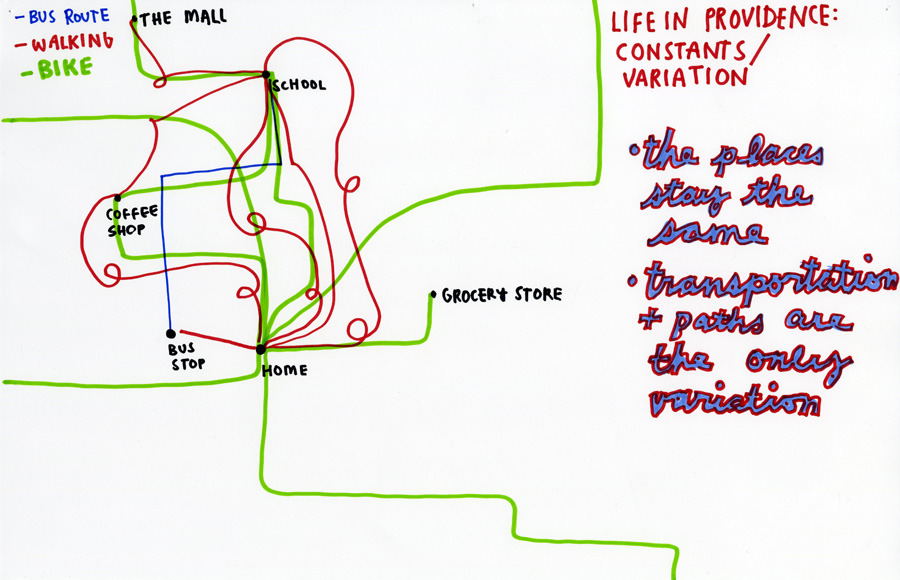 - BUS ROUTE
- WALKING
- BIKE
THE MALL
SCHOOL
COFFEE
SHOP
BUS
STOP
HOME
GROCERY STORE
LIFE IN PROVIDENCE:
CONSTANTS/
VARIATION
• the places
stay the
same
• transportation
+ paths are
the only
variation